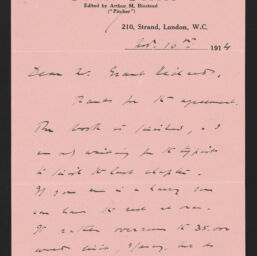 Edited by Arthur M. Binstead
("Pitcher")
210, Strand, London, W.C.
Nov. 10th 1914
Dear Mr. Grant Richards,
Thanks for the agreement.
The book is finished, & I
am waiting for the typist
to finish the last chapter.
If you are in a hurry you
can have the rest at once.
It rather overruns the 35,000
words limit, I fancy, but